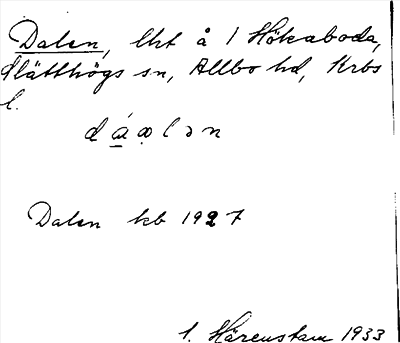 Dalen, lht å 1 Hökaboda,
Slätthögs sn, Allbo hd, Krbs
l.
dáalən
Dalen kb 1927
1. Härenstam 1933